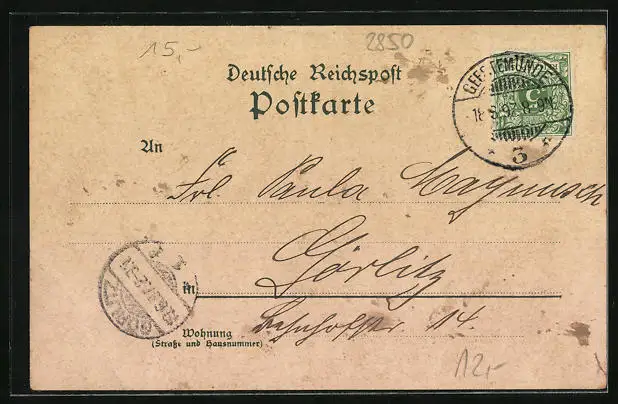 15,-
2850
Deutsche Reichspost
Postkarte
GEESTEMÜNDE
18 8 97
3
5
An
Frl. Paula
Görlitz
in
Wohnung
(Straße und Hausnummer)
Bahnhofstr. 14.
GÖRLITZ
12,-